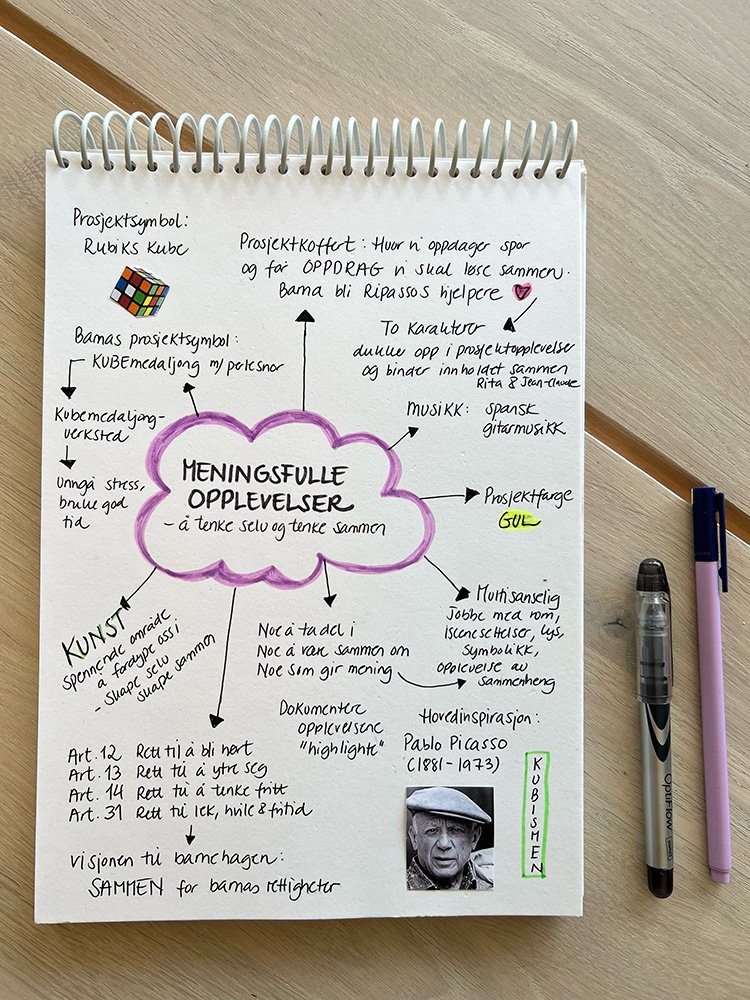 Prosjektsymbol:
RUBIKS KUBE
Prosjektkoffert: Hvor vi oppdager spor
og får OPPDRAG vi skal løse sammen.
Barna bli RIPASSOS hjelpere
To karakterer
dukker opp i prosjektopplevelser
og binder innholdet sammen
Rita & Jean-Claude
Barnas prosjektsymbol:
KUBEmedaljong m/perlesnor
Kubemedaljong-
verksted
Unngå stress,
bruke god
tid
MUSIKK: spansk
gitarmusikk
MENINGSFULLE
OPPLEVELSER
- å tenke selv og tenke sammen
Prosjektfarge
GUL
Multisanselig
Jobbe med rom,
iscenesettelser, lys,
symbolikk,
opplevelse av
sammenheng
KUNST
spennende område
å fordype oss i
- skape selv
skape sammen
Noe å ta del i
Noe å være sammen om
Noe som gir mening
Dokumentere
opplevelsene
"highlighte"
Hovedinspirasjon:
Pablo Picasso
(1881-1973)
KUBISMEN
Art. 12 Rett til å bli hørt
Art. 13 Rett til å ytre seg
Art. 14 Rett til å tenke fritt
Art. 31 Rett til lek, hvile & fritid
Visjonen til barnehagen:
SAMMEN for barnas rettigheter
OptiFlow